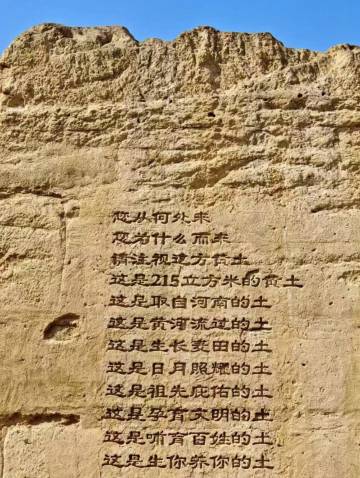 您从何处来
您为什么而来
请注视这方黄土
这是215立方米的黄土
这是取自河南的土
这是黄河流过的土
这是生长麦田的土
这是日月照耀的土
这是祖先庇佑的土
这是孕育文明的土
这是哺育百姓的土
这是生你养你的土